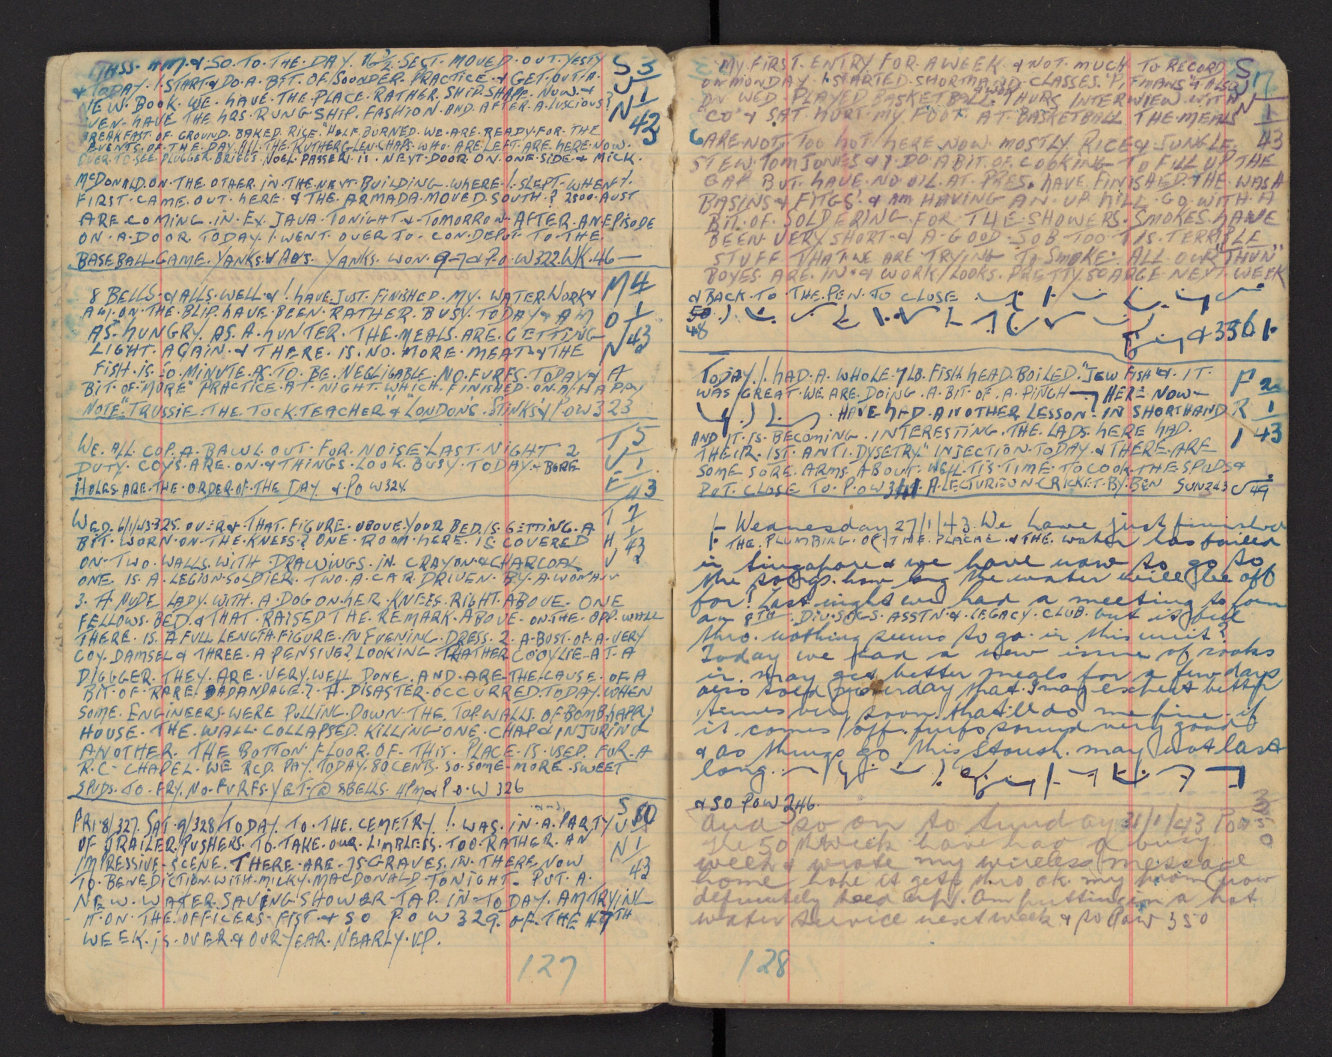 HAS. AM. & SO. TO. THE. DAY. 16 2 SECT. MOVED. OUT. YESTY S 3
& TODAY. I START & DO. A. BIT. OF. SOONDER. PRACTICE. & GET. OUT. A. U 1
NEW. BOOK. WE. HAVE. THE PLACE. RATHER. SHIP. SHAPE. NOW. &
EVEN. HAVE THE HRS. RUNG. SHIP. FASHION. AND. AFTER. A. LUSCIOUS? N 43
BREAKFAST. OF. GROUND. BAKED. RICE. "HALF BURNED. WE. ARE. READY. FOR. THE
EVENTS. OF. THE. DAY. ALL. THE. RUTHERGLEN. CHAPS. WHO. ARE. LEFT. ARE. HERE. NOW.
OVER. TO. SEE. PLUGGER. BRIGGS. NOEL. PASSER. IS. NEXT. DOOR. ON. ONE. SIDE. & MICK.
McDONALD. ON. THE. OTHER. IN. THE. NEXT. BUILDING. WHERE. I. SLEPT. WHEN. I.
FIRST. CAME. OUT. HERE. & THE. ARMADA. MOVED. SOUTH. ? 2500. AUST
ARE. COMING. IN. EX. JAVA. TONIGHT. & TOMORROW. AFTER. AN. EPISODE
ON. A. DOOR. TODAY. I. WENT. OVER. TO. CON. DEPOT. TO. THE
BASEBALL. GAME. YANKS. V. AUS. YANKS. WON. 9-7 & P.o.W 322. WK. 46 —
8 BELLS. & ALLS. WELL. & I. HAVE. JUST. FINISHED. MY. WATER. WORK & M 4
AM. ON. THE. BLIP. HAVE. BEEN. RATHER. BUSY. TODAY. & AM O 1
AS. HUNGRY. AS. A. HUNTER. THE. MEALS. ARE. GETTING N 43
LIGHT. AGAIN. & THERE. IS. NO. MORE. MEAT. & THE
FISH. IS. SO. MINUTE. AS. TO. BE. NEGLIGABLE. NO. FURFS. TODAY. & A
BIT. OF. MORE" PRACTICE. AT. NIGHT. WHICH. FINISHED. ON. A. HAPPY
NOTE. "TRUSSIE. THE. TOCK. TEACHER" & "LONDONS. STINKS" & P.O.W 323
WE. ALL. COP. A. BAWL. OUT. FOR. NOISE. LAST. NIGHT 2 T 5
DUTY. COYS. ARE. ON. & THINGS. LOOK. BUSY. TODAY. & BORE U 1
HOLES. ARE. THE. ORDER. OF. THE DAY & P.O.W 324. E 43
WED. 6/1/43. 325. OVER & THAT. FIGURE. ABOVE. YOUR BED. IS. GETTING. A T 7
BIT. WORN. ON. THE. KNEES. ? ONE. ROOM. HERE. IS. COVERED H 1
ON. TWO. WALLS. WITH. DRAWINGS. IN. CRAYON & CHARCOAL U 43
ONE. IS. A. LEGION. SOLDIER. TWO. A. CAR. DRIVEN. BY. A. WOMAN
3. A. NUDE. LADY. WITH. A. DOG. ON. HER. KNEES. RIGHT. ABOVE. ONE
FELLOWS. BED. & THAT. RAISED. THE. REMARK. ABOVE. ON. THE. OPP. WALL
THERE. IS. A. FULL. LENGTH. FIGURE. IN. EVENING. DRESS. 2. A. BUST. OF. A. VERY
COY. DAMSEL. & THREE. A. PENSIVE? LOOKING. RATHER. COOYLIE. AT. A
DIGGER. THEY. ARE. VERY. WELL. DONE. AND. ARE. THE. CAUSE. OF. A
BIT. OF. RARE. BADANDAGE. ? A. DISASTER. OCCURRED. TODAY. WHEN
SOME. ENGINEERS. WERE. PULLING. DOWN. THE. TOP. WALLS. OF. BOMB HAPPY
HOUSE. THE. WALL. COLLAPSED. KILLING. ONE. CHAP. & INJURING
ANOTHER. THE. BOTTON. FLOOR. OF. THIS. PLACE. IS. USED. FOR. A
R.C. CHAPEL. WE. RCD. PAY. TODAY. 80 CENTS. SO. SOME. MORE. SWEET
SPUDS. TO. FRY. NO. FURFS. YET. @ 8 BELLS. 4PM & P.O.W 326
FRI. 8/327. SAT. 9/328/ TODAY. TO. THE. CEMETRY. I. WAS. IN. A. PARTY S 10
OF. TRAILER. PUSHERS. TO. TAKE. OUR. LIMBLESS. TOO. RATHER. AN U 1
IMPRESSIVE. SCENE. THERE. ARE. 75 GRAVES. IN. THERE. NOW N 43
TO. BENEDICTION. WITH. MICKY. MACDONALD. TONIGHT. PUT. A.
NEW. WATER. SAVING. SHOWER. TAP. IN. TODAY. AM TRYING
IT. ON. THE. OFFICERS. FIST. & SO P O W 329. OF. THE 47TH
WEEK. IS. OVER & OUR YEAR. NEARLY. UP.
127
MY. FIRST. ENTRY FOR A WEEK & NOT. MUCH TO RECORD S 17
ON MONDAY. I STARTED. SHORTHAND. CLASSES. "PITMANS" & ALSO U
ON WED PLAYED BASKETBALL. & WON THURS INTERVIEW. WITH N 1
"CO" & SAT HURT. MY. FOOT AT. BASKETBALL THE MEALS 43
ARE NOT TOO HOT HERE. NOW. MOSTLY RICE & JUNGLE
STEW TOM JONES & I DO A BIT. OF COOKING TO FILL UP. THE
GAP BUT. HAVE. NO OIL. AT. PRES. HAVE FINISHED THE WASH
BASINS & FITGS. & AM HAVING AN UP HILL GO WITH A
BIT. OF. SOLDERING FOR THE SHOWERS. SMOKES HAVE
BEEN VERY SHORT. & A. GOOD SOB TOO TIS TERRIBLE
STUFF THAT WE ARE TRYING TO SMOKE. ALL OUR "THUN"
BOYES ARE IN. & WORK/LOOKS. PRETTY SOARGE NEXT WEEK
& BACK TO THE. PEN. TO CLOSE
50
48
& 336 1.
TODAY. I. HAD. A. WHOLE. 7 LB. FISH HEAD. BOILED. "JEW FISH" & IT. F 22
WAS GREAT. WE ARE. DOING. A. BIT. OF. A. PINCH HERE NOW R 1
HAVE HAD. ANOTHER LESSON. IN SHORTHAND I 43
AND IT. IS. BECOMING. INTERESTING. THE. LADS. HERE HAD.
THEIR. 1ST. ANTI. DYSETRY. INJECTION. TODAY. & THERE. ARE
SOME SORE ARMS ABOUT. WELL. TIS. TIME. TO COOK. THE SPUDS &
CLOSE TO. P.OW 341 A. LECTURE. ON CRICKET. BY. BEN SUN 243 49
Wednesday 27/1/43. We have just finished
THE. PLUMBING. OF. THE. PLACE. & THE. water has failed
in Singapore & we have now to go to
the how long the water will be off
for? Last night we had a meeting to form
an 8TH. DIV. SIGS. ASSTN & LEGACY. CLUB. but it
thro. nothing seems to go in this unit?
Today we had a new issue of
is. may get better meals for a few days
also told yesterday that I may expect better
very soon. that'll do me fine if
it comes off. furfs sound very good
& as things go this Stoush may not last
long.
& SO POW 346
And so on to Sunday 31/1/43 Pow 350
The 50th Week have had a busy
week & wrote my wireless message
home hope it gets thro ok my room now
definitely Am putting in a hot
water service next week & so Pow 350
128